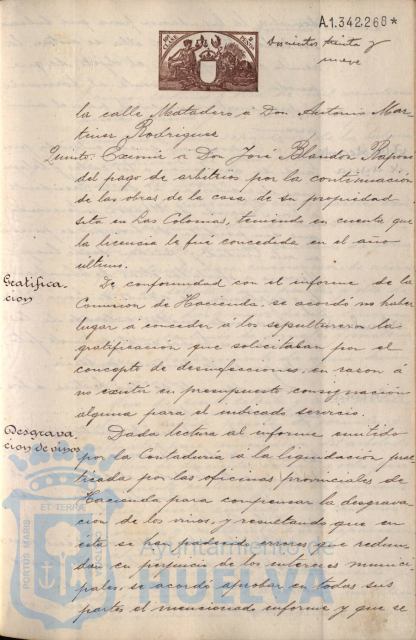 A.1.342.268*
Doscientos treinta y
nueve
la calle Matadero á Don Antonio Mar-
tinez Rodriguez
Quinto. Eximir á Don José Blandon Raposo
del pago de arbitrios por la continuación
de las obras de la casa de su propiedad
sita en Las Colonias, teniendo en cuenta que
la licencia le fué concedida en el año
último.
Gratifica-
cion
De conformidad con el informe de la
Comision de Hacienda, se acordó no haber
lugar á conceder á los sepultureros la
gratificación que solicitaban por el
concepto de desinfecciones, en razon á
no existir en presupuesto consignación
alguna para el indicado servicio.
Desgrava-
cion de vinos
Dada lectura al informe emitido
por la Contaduría á la liquidación prac-
ticada por las oficinas provinciales de
Hacienda para compensar la desgrava-
cion de los vinos, y resultando que en
ésta se han padecido errores que redun-
dan en perjuicio de los intereses munici-
pales, se acordó aprobar en todas sus
partes el mencionado informe y que se
PORTUS MARIS ET TERRAE
Ayuntamiento de
HUELVA